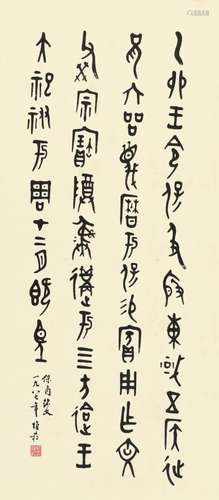 乙卯王令保及殷東或五侯征
兄六品蔑曆于保易賓用乍文
父癸宗寶尊彝遘于四方迨王
大祀祓于周才二月既望
保卣銘文
一九八七年